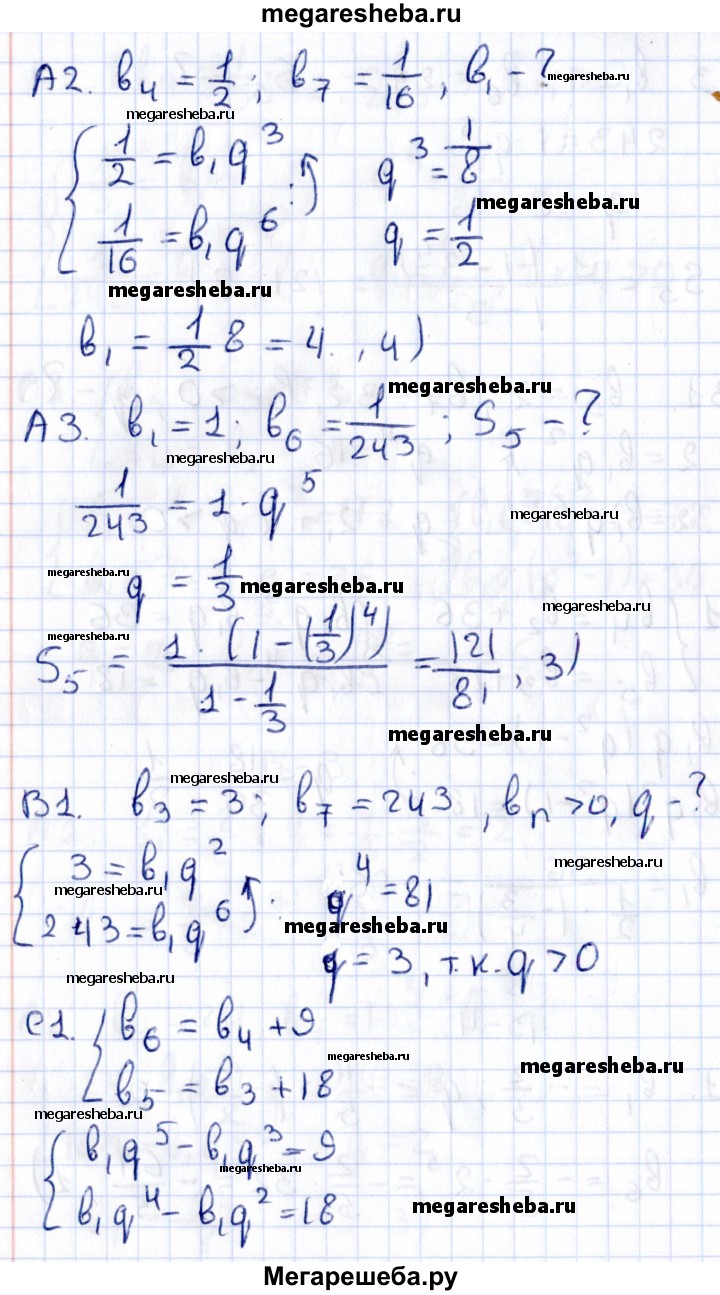 megaresheba.ru
A2. b₄ = 1/2; b₇ = 1/16, b₁ - ?
megaresheba.ru
megaresheba.ru
{ 1/2 = b₁q³
1/16 = b₁q⁶ :)
q³ = 1/8
megaresheba.ru
q = 1/2
megaresheba.ru
b₁ = 1/2 8 = 4. , 4)
megaresheba.ru
A3. b₁ = 1; b₆ = 1/243; S₅ - ?
megaresheba.ru
1/243 = 1 · q⁵
megaresheba.ru
megaresheba.ru
q = 1/3
megaresheba.ru
megaresheba.ru
megaresheba.ru
S₅ = 1·(1-(1/3)⁴) / (1 - 1/3) = 121/81, 3)
megaresheba.ru
megaresheba.ru
B1. b₃ = 3; b₇ = 243, bₙ > 0, q - ?
{ 3 = b₁q²
megaresheba.ru
megaresheba.ru
243 = b₁q⁶ ):
q⁴ = 81
megaresheba.ru
q = 3, т.к. q > 0
megaresheba.ru
C1. { b₆ = b₄ + 9
megaresheba.ru
megaresheba.ru
b₅ = b₃ + 18
megaresheba.ru
{ b₁q⁵ - b₁q³ = 9
megaresheba.ru
b₁q⁴ - b₁q² = 18
megaresheba.ru
Мегарешеба.ру